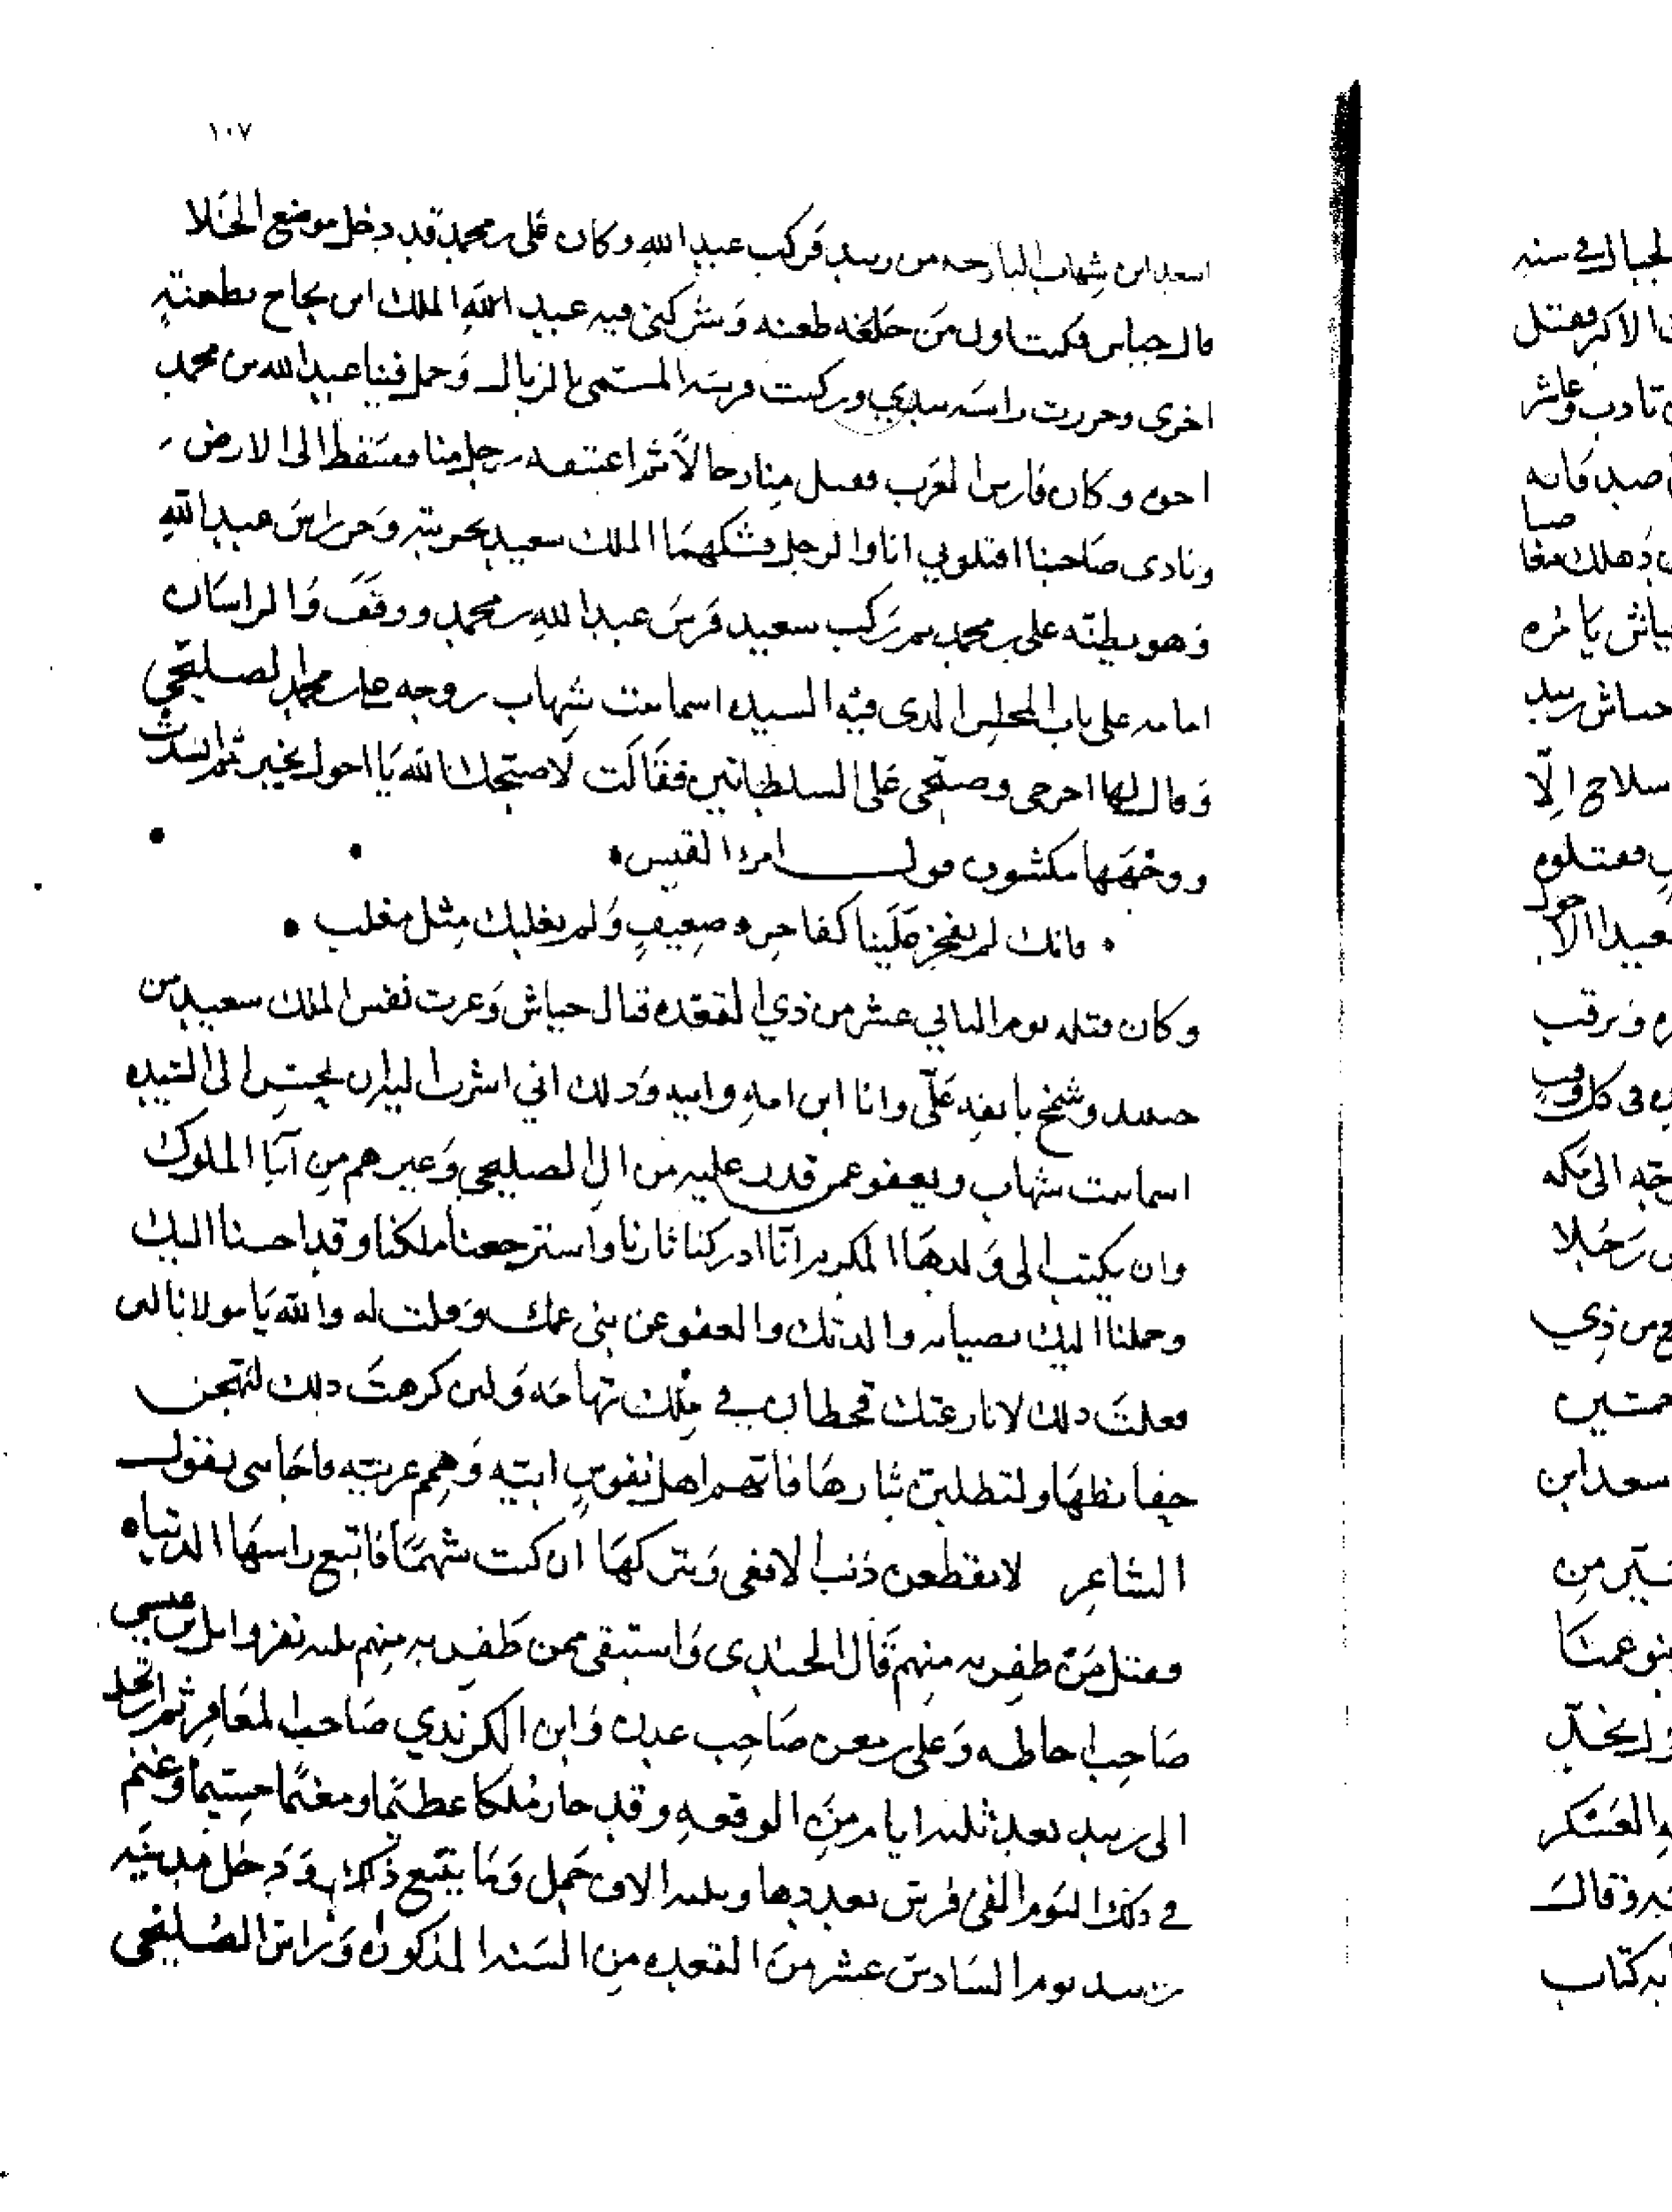 ١٠٧
اسعد ابن شهاب البارحه من زبيد فركب عبد الله وكان على بن محمد قد دخل موضع الخلا
قال جياش فكنت اول من طعنه وشركني فيه عبد الله الملك ابن نجاح بطعنة
اخرى وحززت راسه بيدي وركبت فرسه المسمى بالزبال وحمل فينا عبد الله بن محمد
اخوه وكان فارس العرب فقتل منا رجالا ثم اعتنقه رجل منا فسقط الى الارض
ونادى صاحبنا اقتلوني انا والرجل فشكهما الملك سعيد بحربته وحز راس عبد الله
وهو يظنه على بن محمد ثم ركب سعيد فرس عبد الله بن محمد ووقف والراسان
امامه على باب المجلس الذى فيه السيده اسما بنت شهاب زوجه على بن محمد الصليحي
وقال لها اخرجي وصبحي على السلطانين فقالت لا صبحك الله يا احول بخير ثم انشدت
ووجهها مكشوف قول امرء القيس
فانك لم يفخر علينا كفاخر ضعيف ولم يغلبك مثل مغلب
وكان قتله يوم الثاني عشر من ذي القعده قال جياش وعزت نفس الملك سعيد من
حينئذ وشمخ بانفه علي وانا ابن امه وابيه وذلك اني اشرت اليه ان يحسن الى السيده
اسما بنت شهاب ويعفو عمن قدر عليه من ال الصليحي وغيرهم من آبا الملوك
وان يكتب الى ولدها المكرم انا ادركنا ثارنا واسترجعنا ملكنا وقد احسنا اليك
وحملنا اليك بصيانه والدتك والعفو عن بني عمك وقلت له والله يا مولانا لئن
فعلت ذلك لا نازعتك قحطان في ملك تهامه ولئن كرهت ذلك لتهيجن
حفائظها ولتطلبن بثارها فانهم اهل نفوس ابيه وهمم عربيه فاجابني بقول
الشاعر لا تقطعن ذنب الافعى وتتركها ان كنت شهما فاتبع راسها الذنبا
فقتل من ظفر به منهم قال الجندى واستبقى ممن ظفر به منهم ثلثه نفر وايل بن عيسى
صاحب احاظه وعلى بن معن صاحب عدن وابن الكرندي صاحب المعافر ثم ارتحل
الى زبيد بعد ثلثه ايام من الوقعه وقد حاز ملكا عظيما ومغنما جسيما وغنم
في ذلك اليوم الفى فرس بعددها وثلثه الاف جمل وما يتبع ذلك ودخل مدينه
زبيد يوم السادس عشر من القعده من السنه المذكوره وراس الصليحي